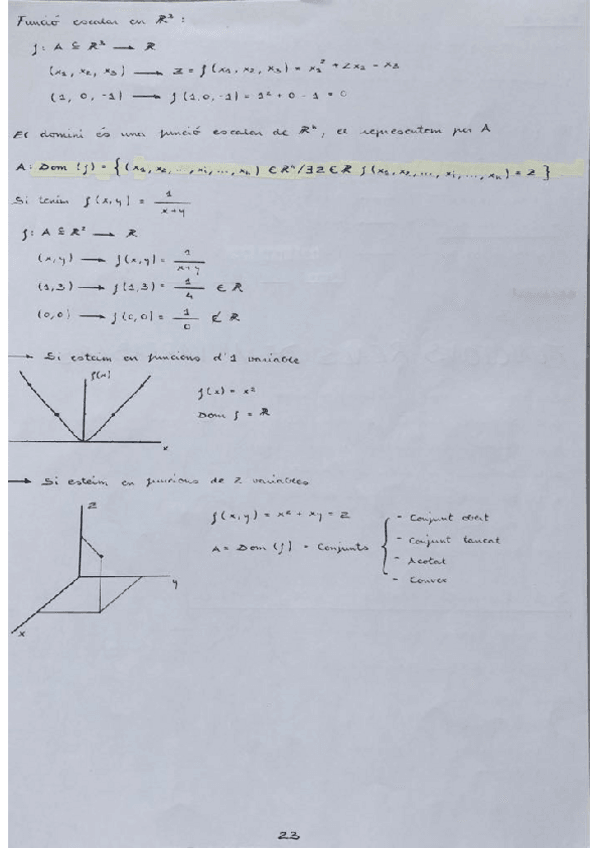 Funció escalar en ℝ³ :
f: A ⊆ ℝ³ → ℝ
(x₁, x₂, x₃) → z = f(x₁, x₂, x₃) = x₁² + 2x₂ - x₃
(1, 0, -1) → f(1,0,-1) = 1² + 0 - 1 = 0
El domini és una funció escalar de ℝⁿ, el representem per A
A: Dom (f) = {(x₁, x₂, ..., xᵢ, ..., xₙ) ∈ ℝⁿ / ∃ z ∈ ℝ f(x₁, x₂, ..., xᵢ, ..., xₙ) = z}
Si tenim f(x,y) = 1/(x+y)
f: A ⊆ ℝ² → ℝ
(x,y) → f(x,y) = 1/(x+y)
(1,3) → f(1,3) = 1/4 ∈ ℝ
(0,0) → f(0,0) = 1/0 ∉ ℝ
→ Si esteim en funcions d'1 variable
f(x)
x
f(x) = x²
Dom f = ℝ
→ Si esteim en funcions de 2 variables
z
y
x
f(x,y) = x² + xy = z
A = Dom (f) = Conjunts
- Conjunt obert
- Conjunt tancat
- Acotat
- Convex
23